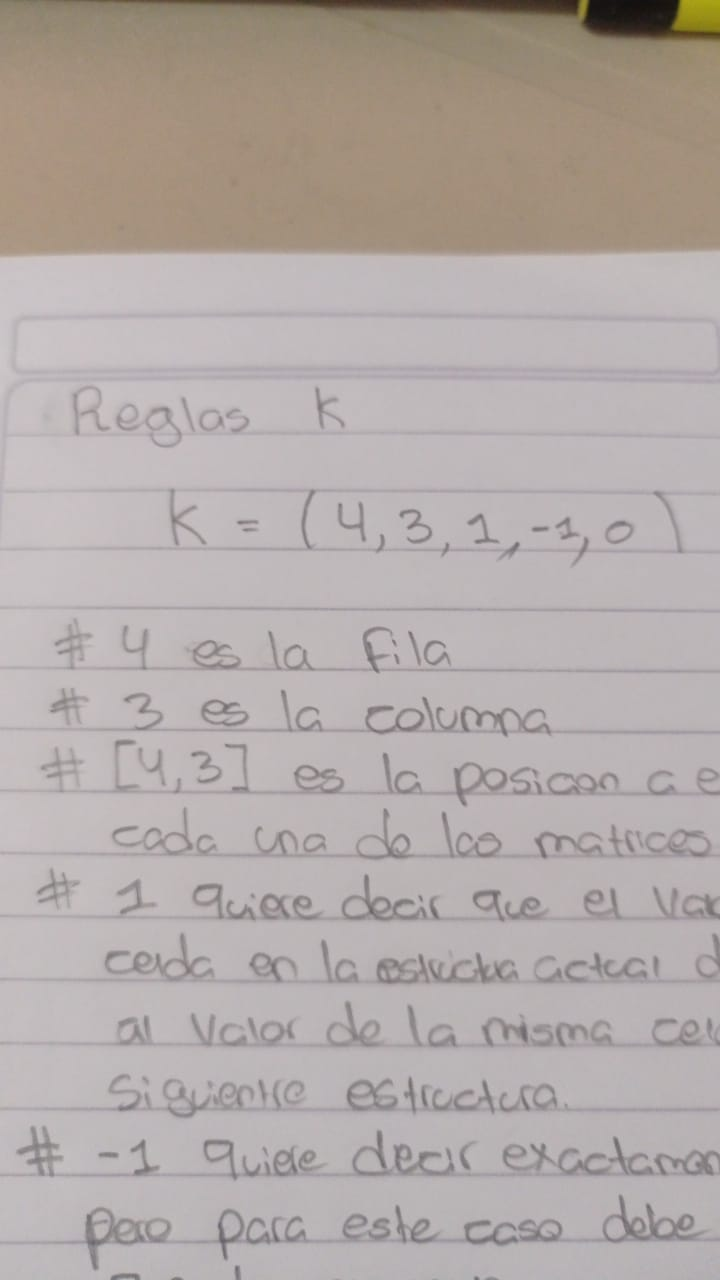 Reglas K
K = (4, 3, 1, -1, 0)
# 4 es la fila
# 3 es la columna
# [4,3] es la posicion
cada una de las matrices
# 1 quiere decir que el
celda en la actual
al valor de la misma
siguiente estructura.
# -1 quiere decir
pero para este caso debe